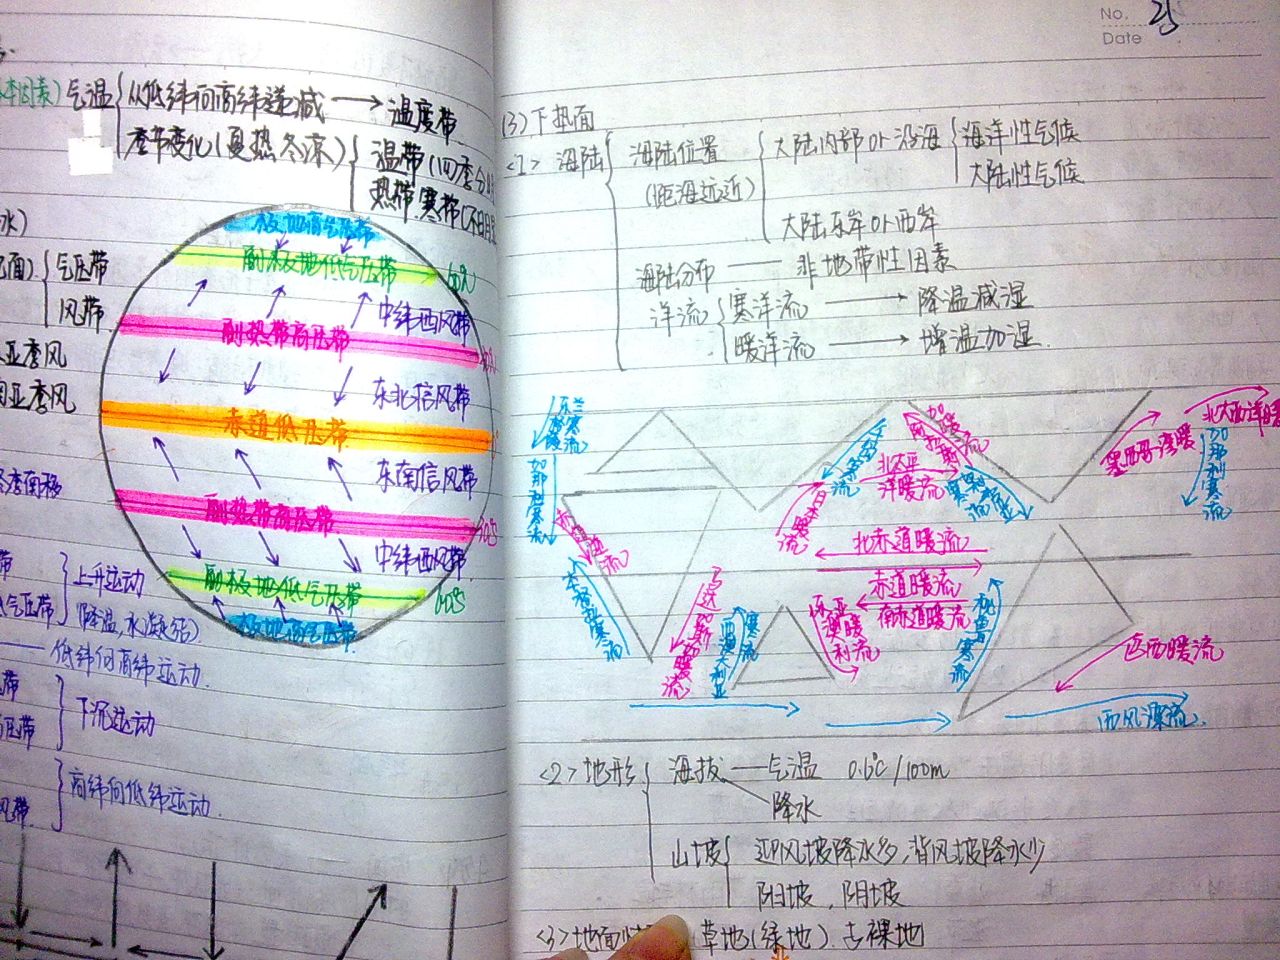 气温
从低纬向高纬递减 → 温度带
季节变化(夏热冬凉)
温带(四季分
热带.寒带(不明显
气压带
风带
亚季风
亚季风
极地高气压带
副极地低气压带 60°N
中纬西风带
副热带高压带
东北信风带
赤道低压带
东南信风带
副热带高压带
中纬西风带
副极地低气压带 60°S
极地高气压带
上升运动
(降温,水凝结)
低纬向高纬运动.
下沉运动
高纬向低纬运动.
No. 25
Date
(3)下垫面
<1> 海陆
海陆位置
(距海远近)
大陆内部or沿海
海洋性气候
大陆性气候
大陆东岸or西岸
海陆分布 —— 非地带性因素
洋流
寒洋流 → 降温减湿
暖洋流 → 增温加湿.
加那利寒流
北太平洋暖流
日本暖流
墨西哥湾暖
北大西洋暖
加那利寒流
北赤道暖流
赤道暖流
南赤道暖流
东澳大利亚暖流
西澳大利亚寒流
秘鲁寒流
巴西暖流
西风漂流.
<2>地形
海拔 — 气温 0.6℃/100m
降水
山坡
迎风坡降水多,背风坡降水少
阳坡,阴坡
<3>地面
草地(绿地).
裸地